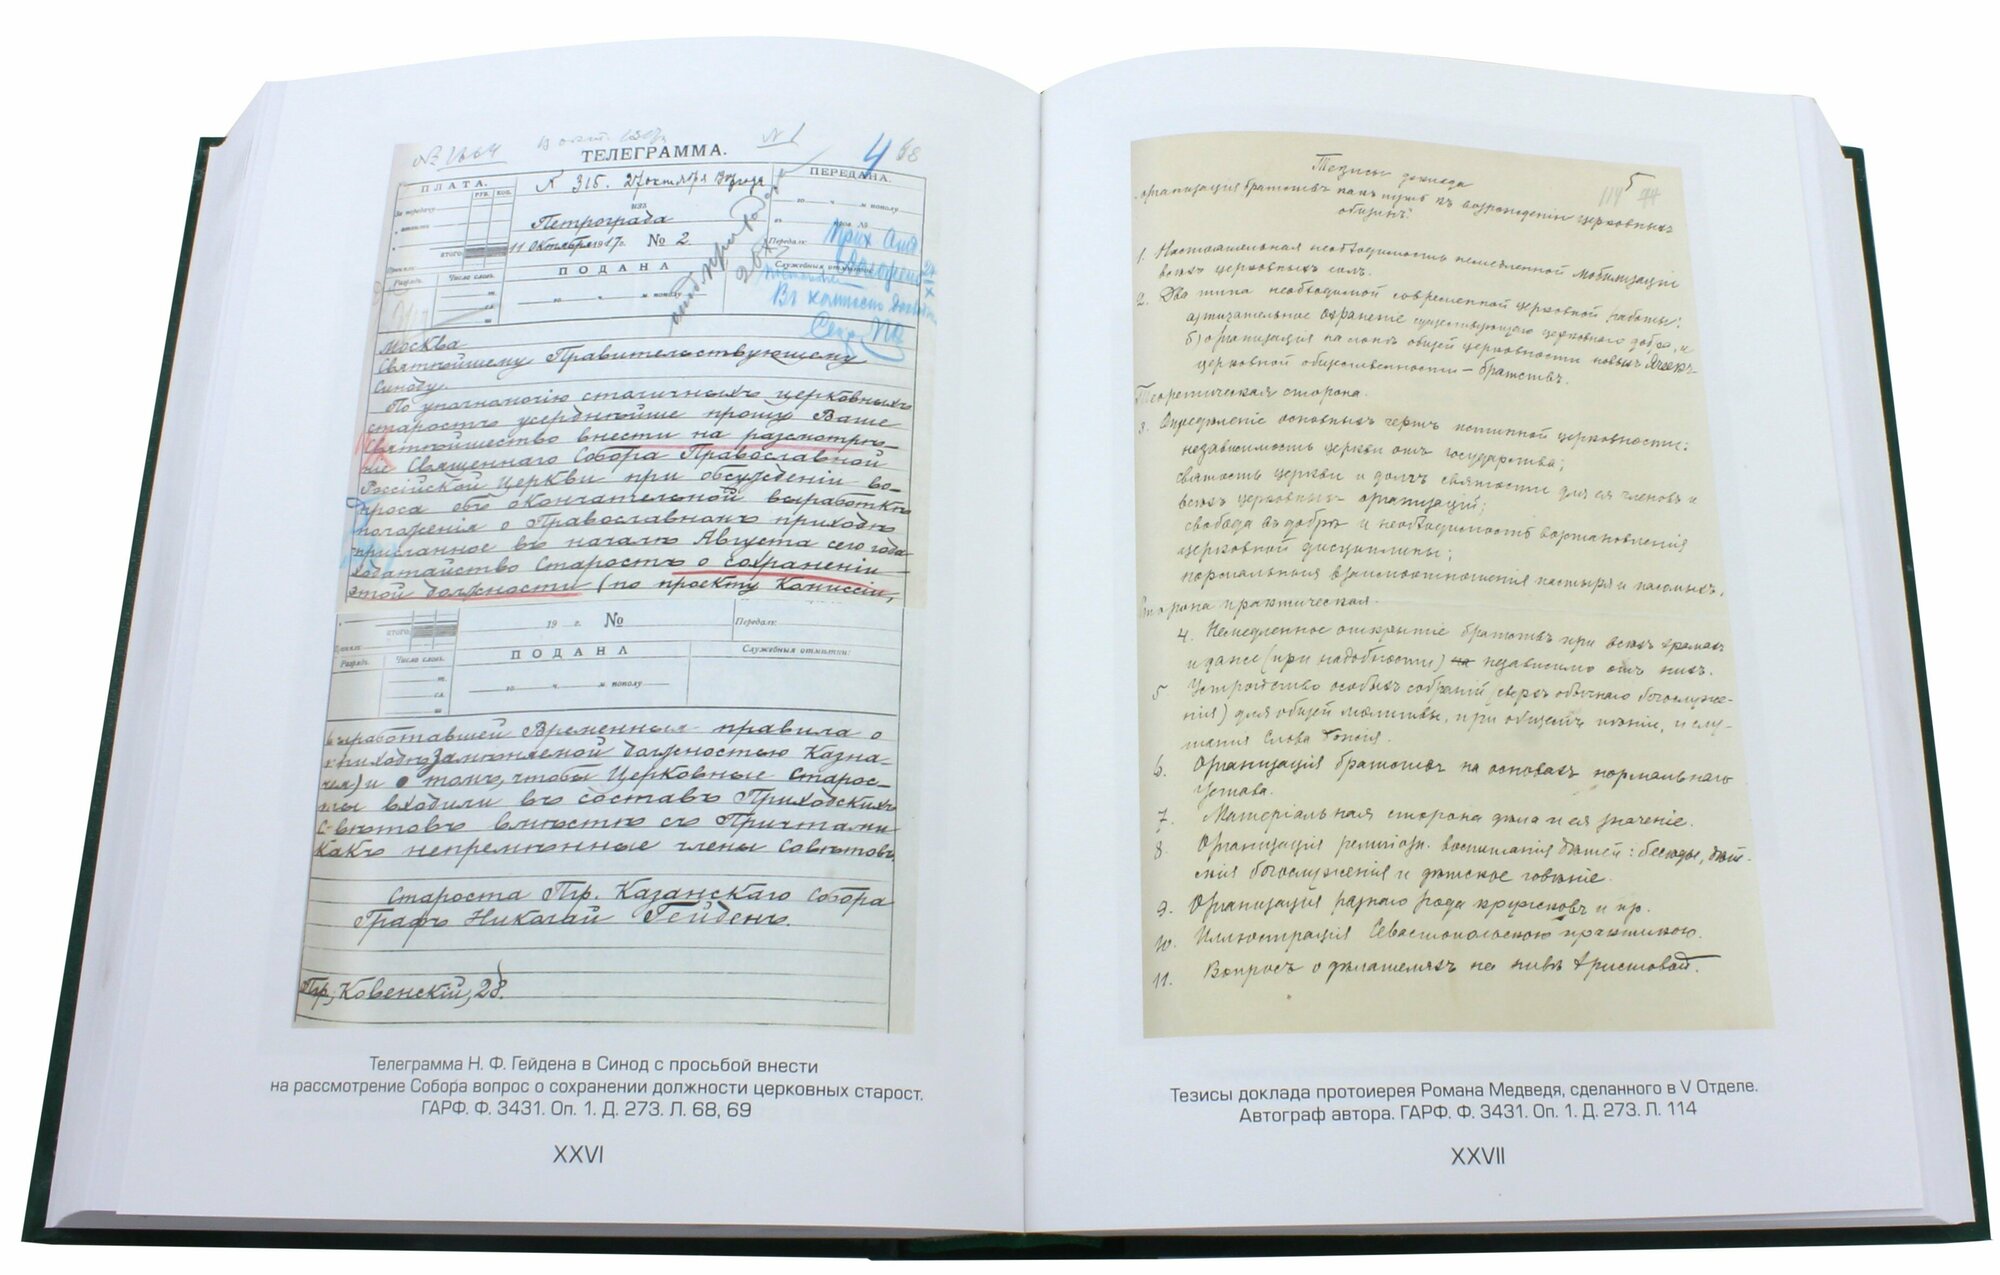 ТЕЛЕГРАММА.
№ 1
4 68
ПЛАТА.
РУБ. КОП.
К 315. 27 октября 1917 года
ПЕРЕДАНА.
За передачу
изъ
Петрограда
11 Октября 1917 г. № 2.
ИТОГО
Передалъ:
ПОДАНА
Служебныя отмѣтки:
Разрядъ. Число словъ.
ч. м. пополу
Москва
Святѣйшему Правительствующему
Синоду.
По уполномочію столичныхъ церковныхъ
старостъ усерднѣйше прошу Ваше
Святѣйшество внести на разсмотрѣ-
ніе Священнаго Собора Православной
Россійской Церкви при обсужденіи во-
проса объ окончательной выработкѣ
положенія о Православномъ приходѣ
присланное въ началѣ Августа сего года
ходатайство Старостъ о сохраненіи
этой должности (по проекту Комиссіи,
ИТОГО
19 г. №
Передалъ:
ПОДАНА
Служебныя отмѣтки:
Разрядъ. Число словъ.
ч. м. пополу
выработавшей Временныя правила о
приходѣ замѣняемой должностью Казна-
чея) и о томъ, чтобы Церковные Старос-
ты входили въ составъ Приходскихъ
Совѣтовъ вмѣстѣ съ Причтами
какъ непремѣнные члены Совѣтовъ.
Староста Птр. Казанскаго Собора
Графъ Николай Гейденъ.
Птр., Ковенскій, 28.
Телеграмма Н. Ф. Гейдена в Синод с просьбой внести
на рассмотрение Собора вопрос о сохранении должности церковных старост.
ГАРФ. Ф. 3431. Оп. 1. Д. 273. Л. 68, 69
XXVI
Тезисы доклада
114
организація братствъ какъ путь къ возрожденію церковныхъ
общинъ.
1. Настоятельная необходимость немедленной мобилизаціи
всѣхъ церковныхъ силъ.
2. Два типа необходимой современной церковной работы:
а) тщательное охраненіе существующаго церковнаго добра, и
б) организація на почвѣ общей церковности новыхъ ячеекъ
церковной общественности – братствъ.
Теоретическая сторона.
3. Опредѣленіе основныхъ чертъ истинной церковности:
независимость церкви отъ государства;
святость церкви и долгъ святости для ея членовъ и
всѣхъ церковныхъ организацій;
свобода въ добрѣ и необходимость возстановленія
церковной дисциплины;
нормальныя взаимоотношенія пастыря и пасомыхъ.
Сторона практическая.
4. Немедленное открытіе братствъ при всѣхъ храмахъ
и даже (при надобности) независимо отъ нихъ.
5. Устройство особыхъ собраній (сверхъ обычнаго богослуже-
нія) для общей молитвы, при общемъ пѣніи, и слу-
шанія Слова Божія.
6. Организація братствъ на основахъ нормальнаго
Устава.
7. Матеріальная сторона дѣла и ея значеніе.
8. Организація религіозн. воспитанія дѣтей: бесѣды, дѣт-
скія богослуженія и дѣтское говѣніе.
9. Организація разнаго рода кружковъ и пр.
10. Иллюстрація Севастопольскою практикою.
11. Вопросъ о дѣлателяхъ на нивѣ Христовой.
Тезисы доклада протоиерея Романа Медведя, сделанного в V Отделе.
Автограф автора. ГАРФ. Ф. 3431. Оп. 1. Д. 273. Л. 114
XXVII